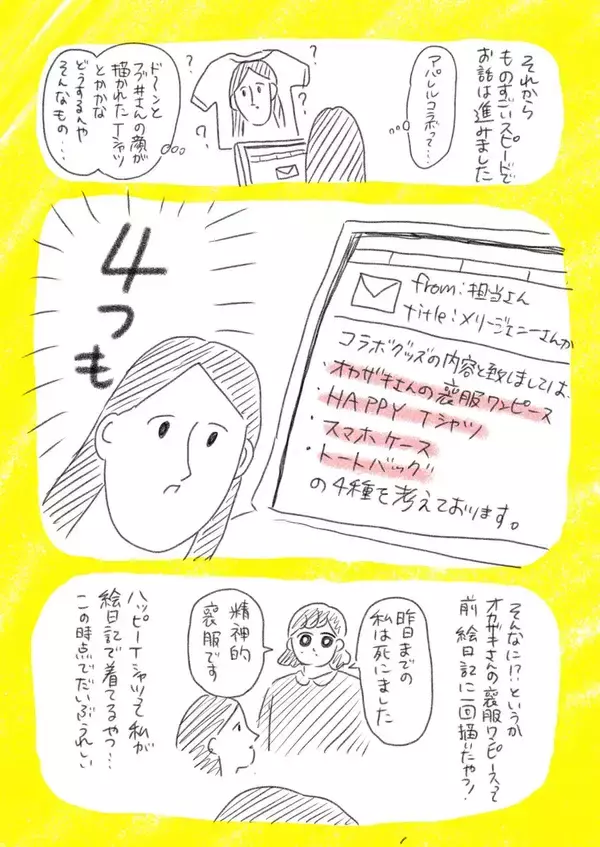 それから
ものすごいスピードで
お話は進みました
アパレルコラボって…
?
?
?
?
?
ドーンと
ブ井さんの顔が
描かれたTシャツ
とかかな
どうするんや
そんなもの…
from:担当さん
title:メリージェニーさんが
コラボグッズの内容と致しましては、
・オカザキさんの喪服ワンピース
・HAPPY Tシャツ
・スマホケース
・トートバッグ
の4種を考えております。
4つも
そんなに!?というか
オカザキさんの喪服ワンピースって
前 絵日記に一回描いたやつ!
昨日までの
私は死にました
精神的
喪服です
ハッピーTシャツって私が
絵日記で着てるやつ…
この時点でだいぶうれしい